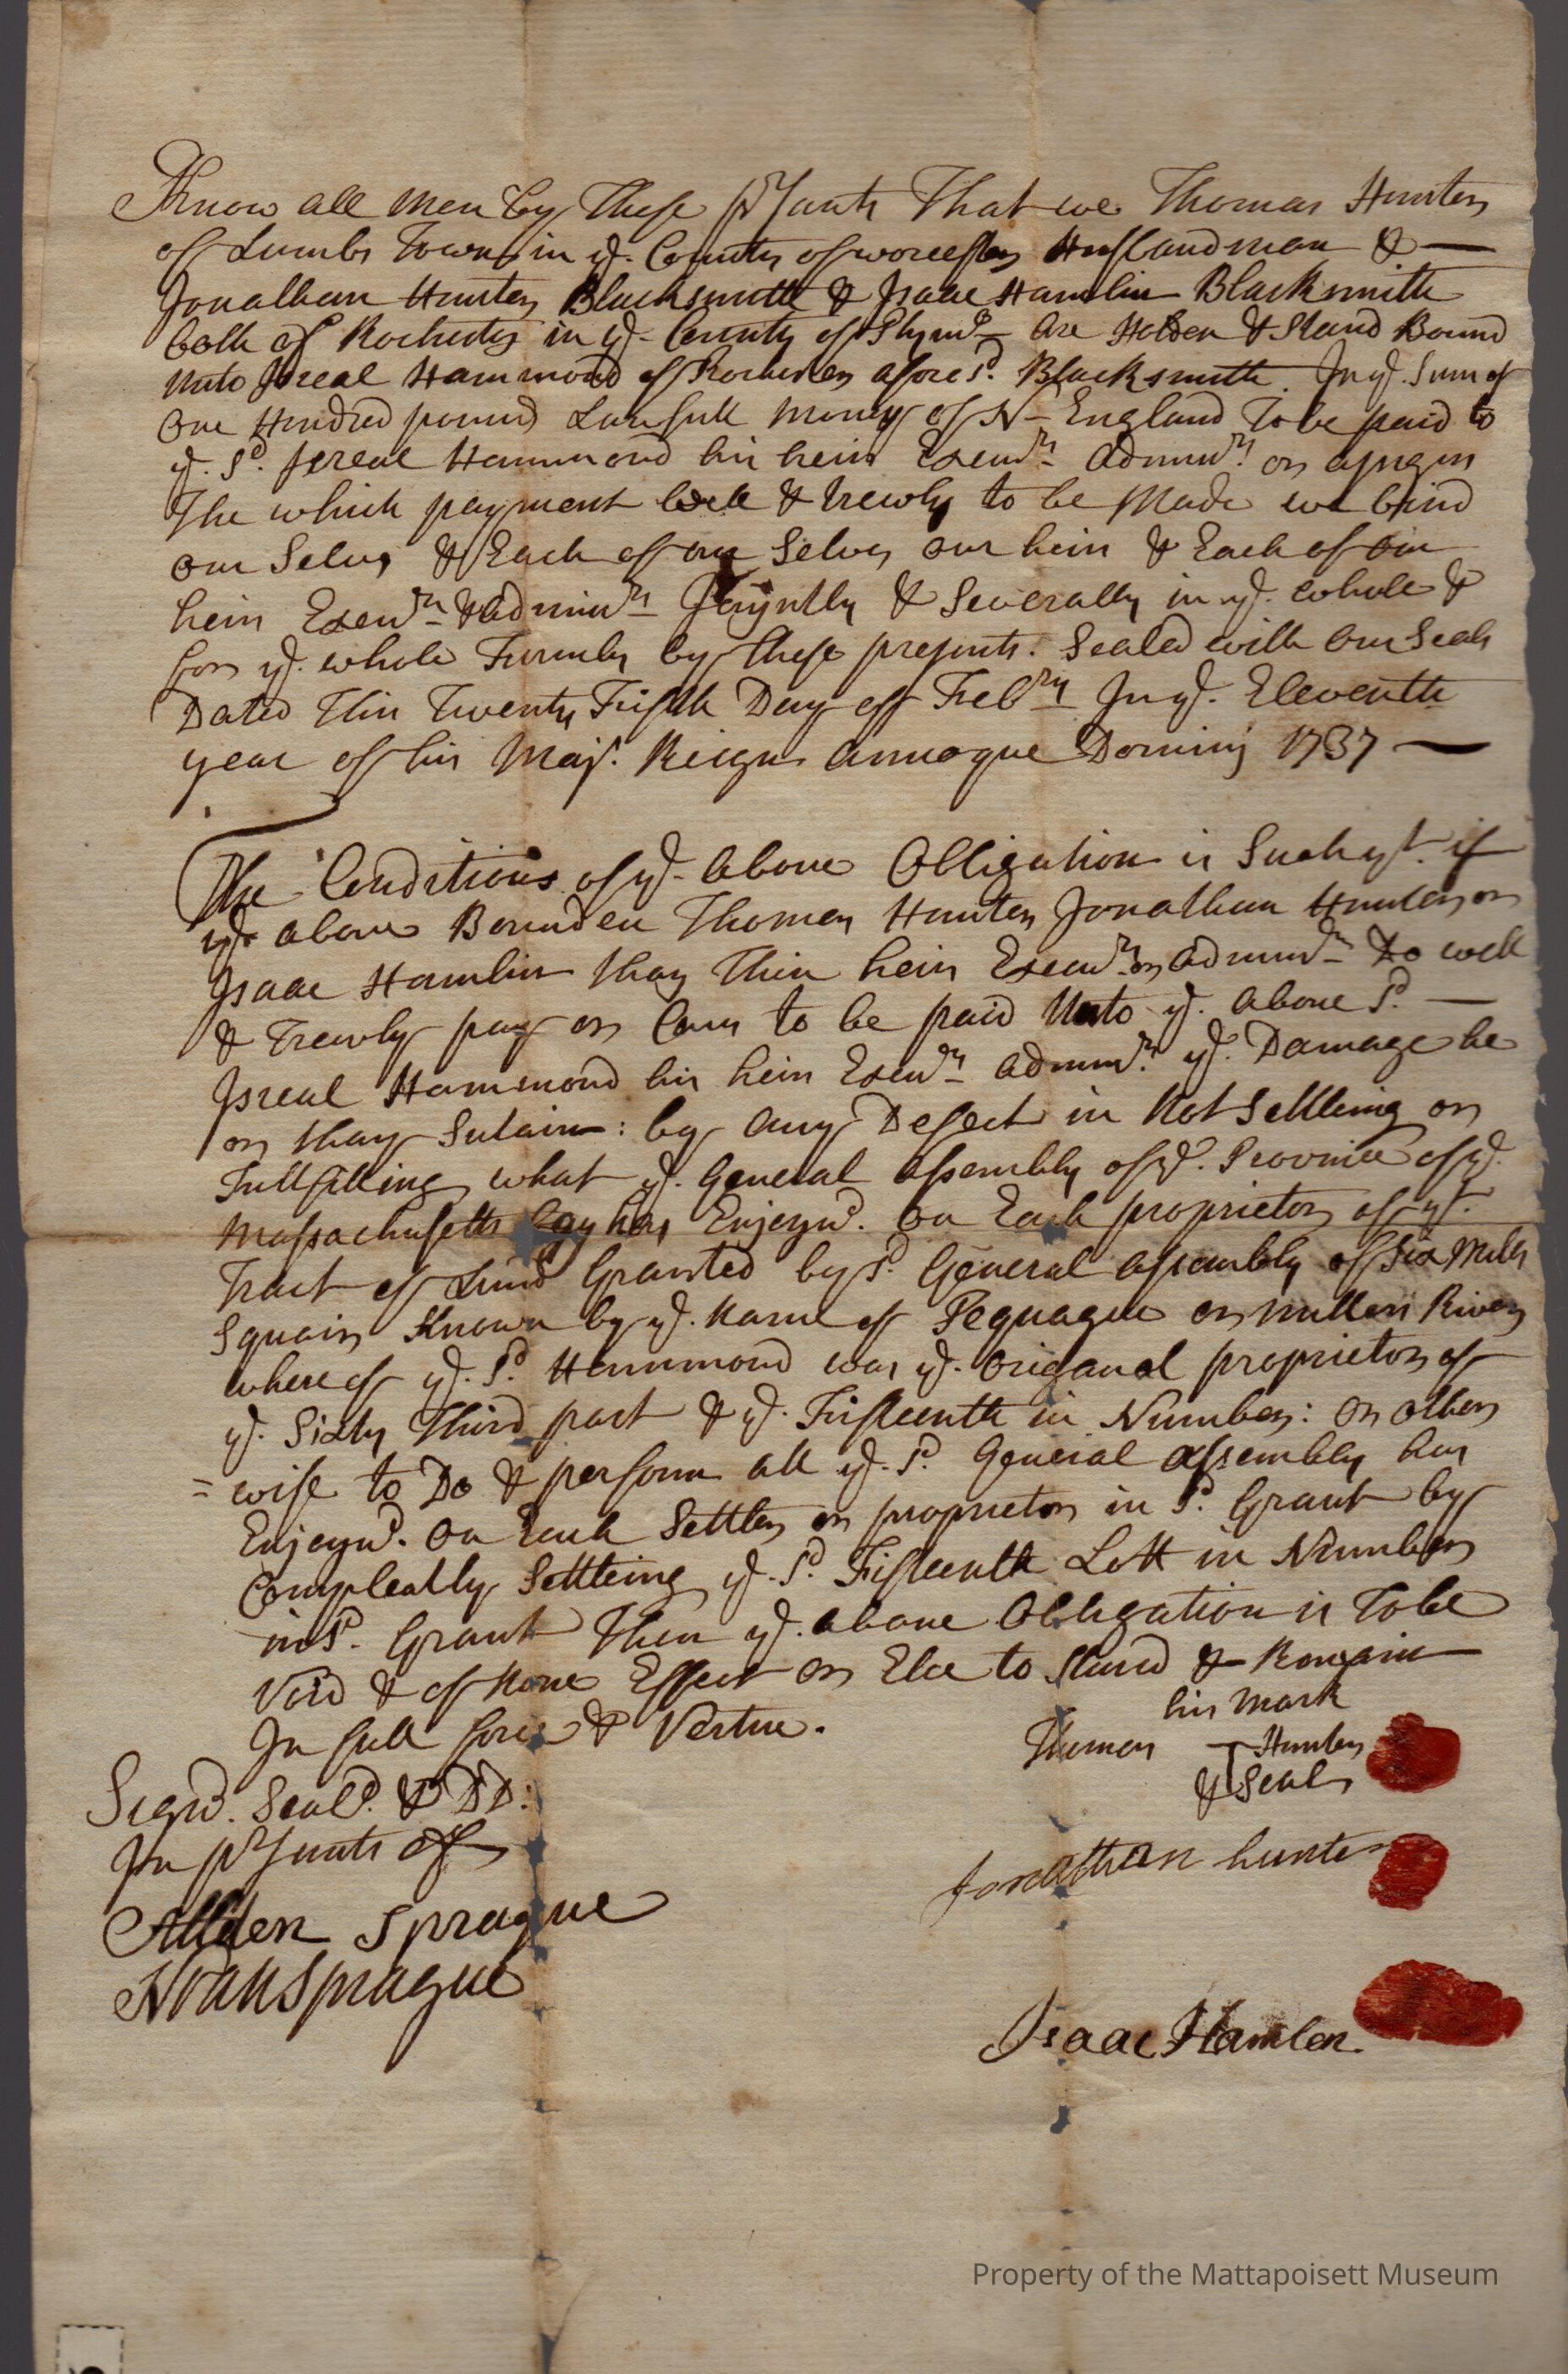 Know all Men by These prsants That we Thomas Hunter
of Lumbs Town in ye. County of worcester Husbandman & —
Jonathan Hunter Blacksmith & Isaac Hamlin Blacksmith
both of Rochester in ye. County of Plymo. Are Holden & Stand Bound
Unto Isreal Hammond of Rochester afore sd. Blacksmith. In ye. Sum of
One Hundred pound Lawfull Money of N- England To be paid to
ye. sd. Isreal Hammond his heirs Execurs. Adminrs. or asigns
The which payment well & trewly to be Made we bind
Our Selves & Each of our Selves our heirs & Each of our
heirs Execurs. & adminrs. Joyntly & Severally in ye. whole &
for ye. whole Firmly by these presents. Sealed with Our Seals
Dated This Twenty Fifth Day of Febry. In ye. Eleventh
year of his Majs. Reign Annoque Dominj 1737 —
The Conditions of ye. above Obligation is Such yt. if
ye above Bounden Thomas Hunter Jonathan Hunter or
Isaac Hamlin thay Thir heirs Execurs. or adminrs. Do well
& Trewly pay or Caus to be paid Unto ye. above sd. —
Isreal Hammond his heirs Execurs. adminrs. ye. Damage he
or thay Sutain: by any Defect in Not Settleing or
Fullfilling what ye. General assembly of ye. Province of ye.
Massachusetts Bay has Enjoynd. On Each proprietor of yt.
Tract of Land Granted by sd. General assembly of Six Mills
Squair Known by ye. Name of Pequague on millers River
where of ye. sd. Hammond was ye. Origanal proprietor of
ye. Sixty Third part & ye. Fifteenth in Number: Or other
= wise to Do & perform all ye. sd. General assembly has
Enjoynd. On Each Settler or proprietor in sd. Grant by
Compleatly Settleing ye. sd. Fifteenth Lott in Number
in sd. Grant Then ye. above Obligation is To be
Void & of None Effect or Else to Stand & Remain
In full force & Vertue.
his mark
Thomas Hunter
& Seal
Signd. Seald. & DD:
In prsants of
Jonathan hunter
Allden Sprague
Noah Sprague
Isaac Hamlen
Property of the Mattapoisett Museum